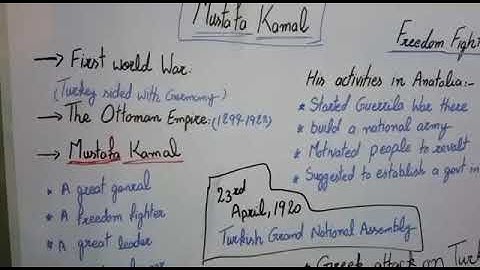 Mustafa Kamal
Freedom Fight
→ First world War:
(Turkey sided with Germany)
→ The Ottoman Empire:(1299-1922)
→ Mustafa Kamal
* A great genral
* A freedom fighter
* A great leader
His activities in Anatalia:-
* Started Guerrila War there
* build a national army
* Motivated people to revolt
* Suggested to establish a govt in
23rd
April, 1920
Turkish Grand National Assembly
Greek attack on Turk